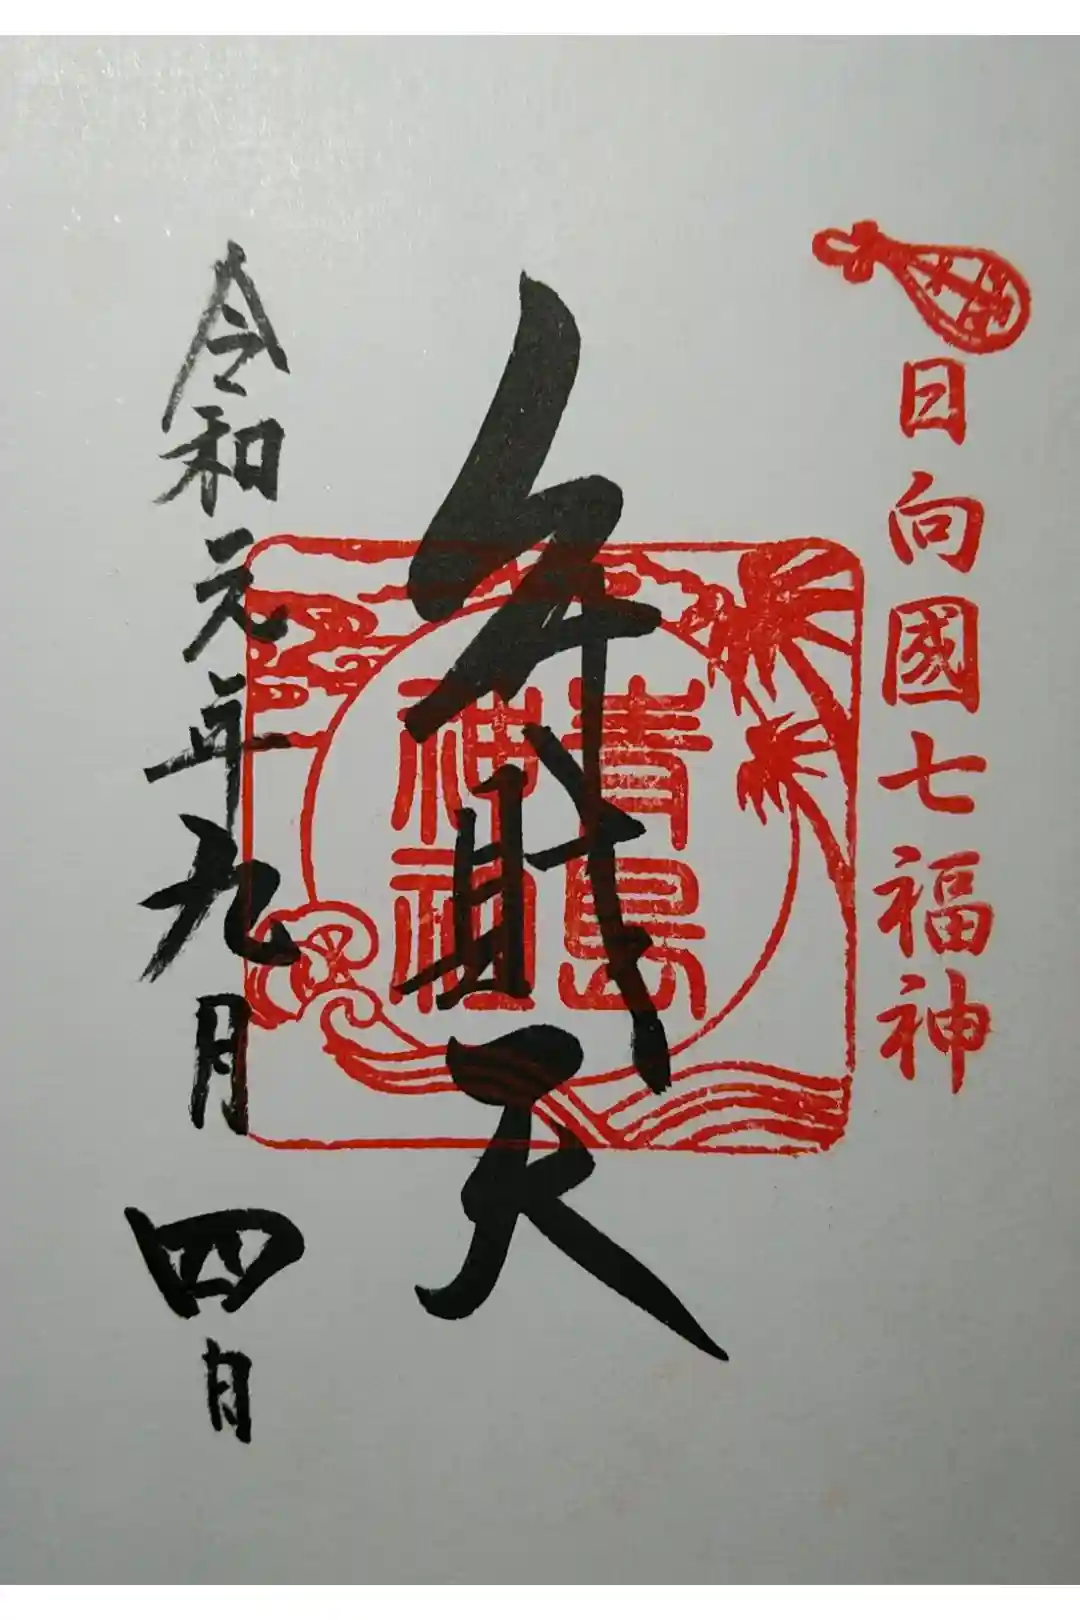 日向國七福神
弁財天
青島
神社
令和元年九月四日